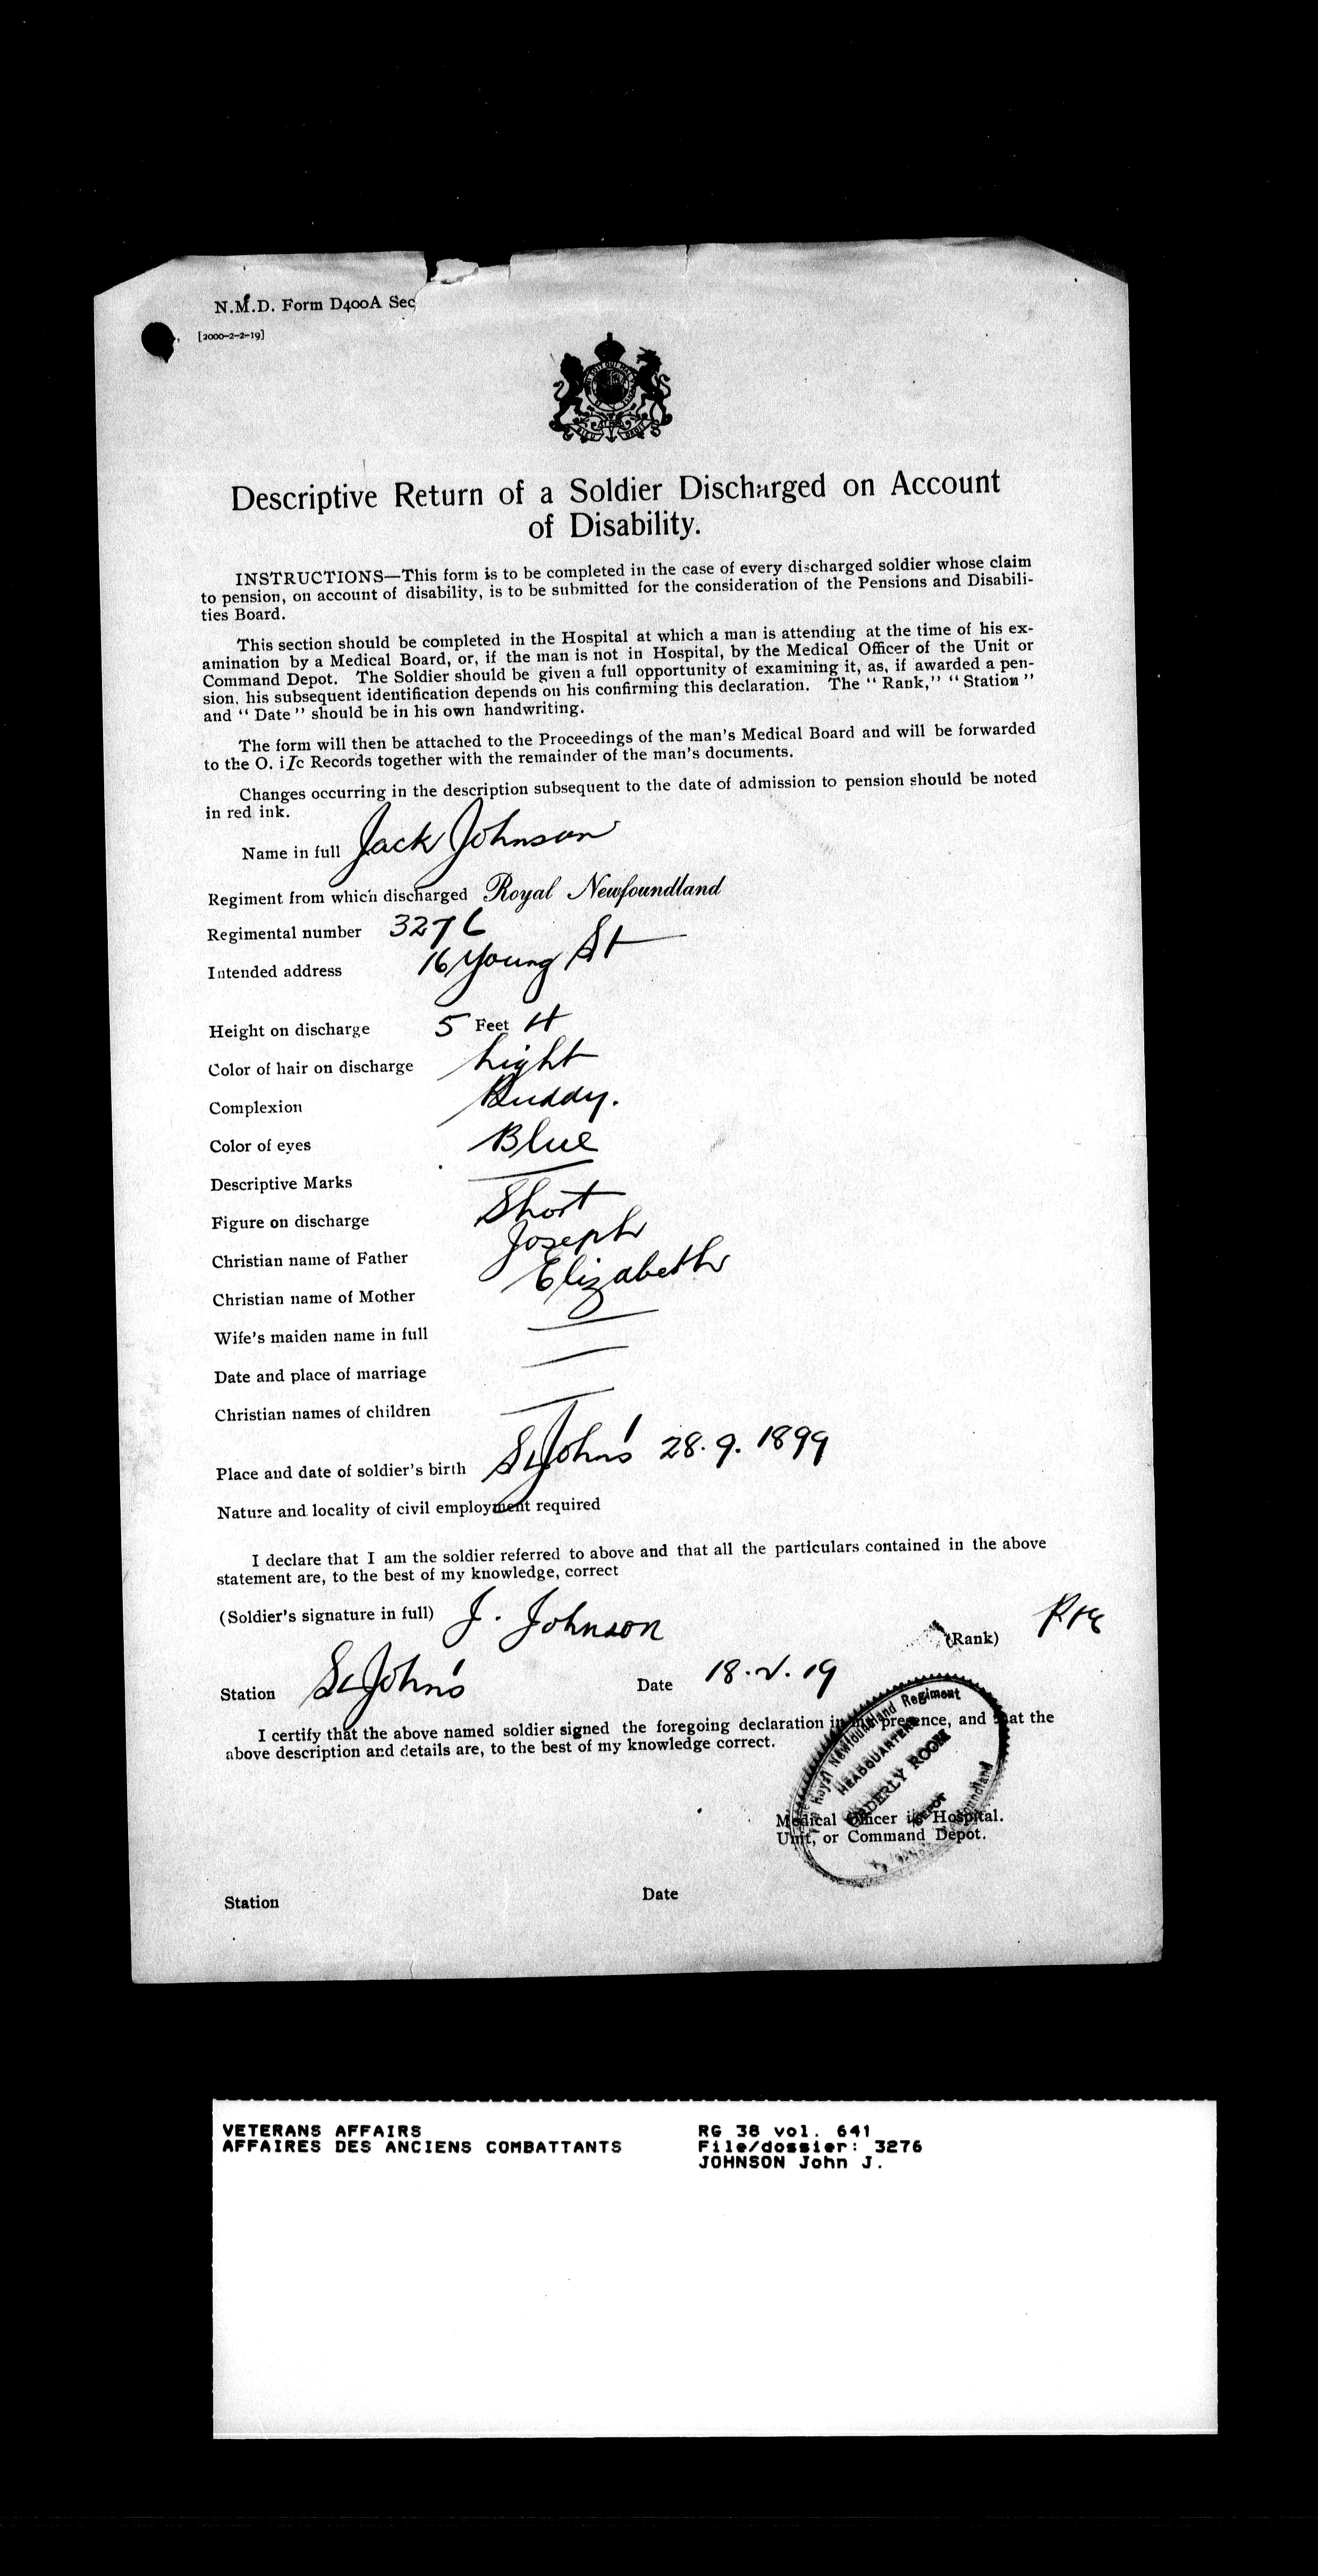 N.M.D. Form D400A Sec
[2000-2-2-19]
Descriptive Return of a Soldier Discharged on Account
of Disability.
INSTRUCTIONS—This form is to be completed in the case of every discharged soldier whose claim
to pension, on account of disability, is to be submitted for the consideration of the Pensions and Disabili-
ties Board.
This section should be completed in the Hospital at which a man is attending at the time of his ex-
amination by a Medical Board, or, if the man is not in Hospital, by the Medical Officer of the Unit or
Command Depot. The Soldier should be given a full opportunity of examining it, as, if awarded a pen-
sion, his subsequent identification depends on his confirming this declaration. The “Rank,” “Station”
and “Date” should be in his own handwriting.
The form will then be attached to the Proceedings of the man's Medical Board and will be forwarded
to the O. i/c Records together with the remainder of the man's documents.
Changes occurring in the description subsequent to the date of admission to pension should be noted
in red ink.
Name in full Jack Johnson
Regiment from which discharged Royal Newfoundland
Regimental number 3276
Intended address 16 Young St
Height on discharge 5 Feet 4
Color of hair on discharge Light
Complexion Ruddy.
Color of eyes Blue
Descriptive Marks
Figure on discharge Short
Christian name of Father Joseph
Christian name of Mother Elizabeth
Wife's maiden name in full
Date and place of marriage
Christian names of children
Place and date of soldier's birth St John's 28.9.1899
Nature and locality of civil employment required
I declare that I am the soldier referred to above and that all the particulars contained in the above
statement are, to the best of my knowledge, correct
(Soldier's signature in full) J. Johnson (Rank) Pte
Station St John's Date 18.2.19
I certify that the above named soldier signed the foregoing declaration in my presence, and that the
above description and details are, to the best of my knowledge correct.
Royal Newfoundland Regiment
HEADQUARTERS
ORDERLY ROOM
DEPOT
Medical Officer i/c Hospital.
Unit, or Command Depot.
Station Date
VETERANS AFFAIRS RG 38 vol. 641
AFFAIRES DES ANCIENS COMBATTANTS File/dossier: 3276
JOHNSON John J.